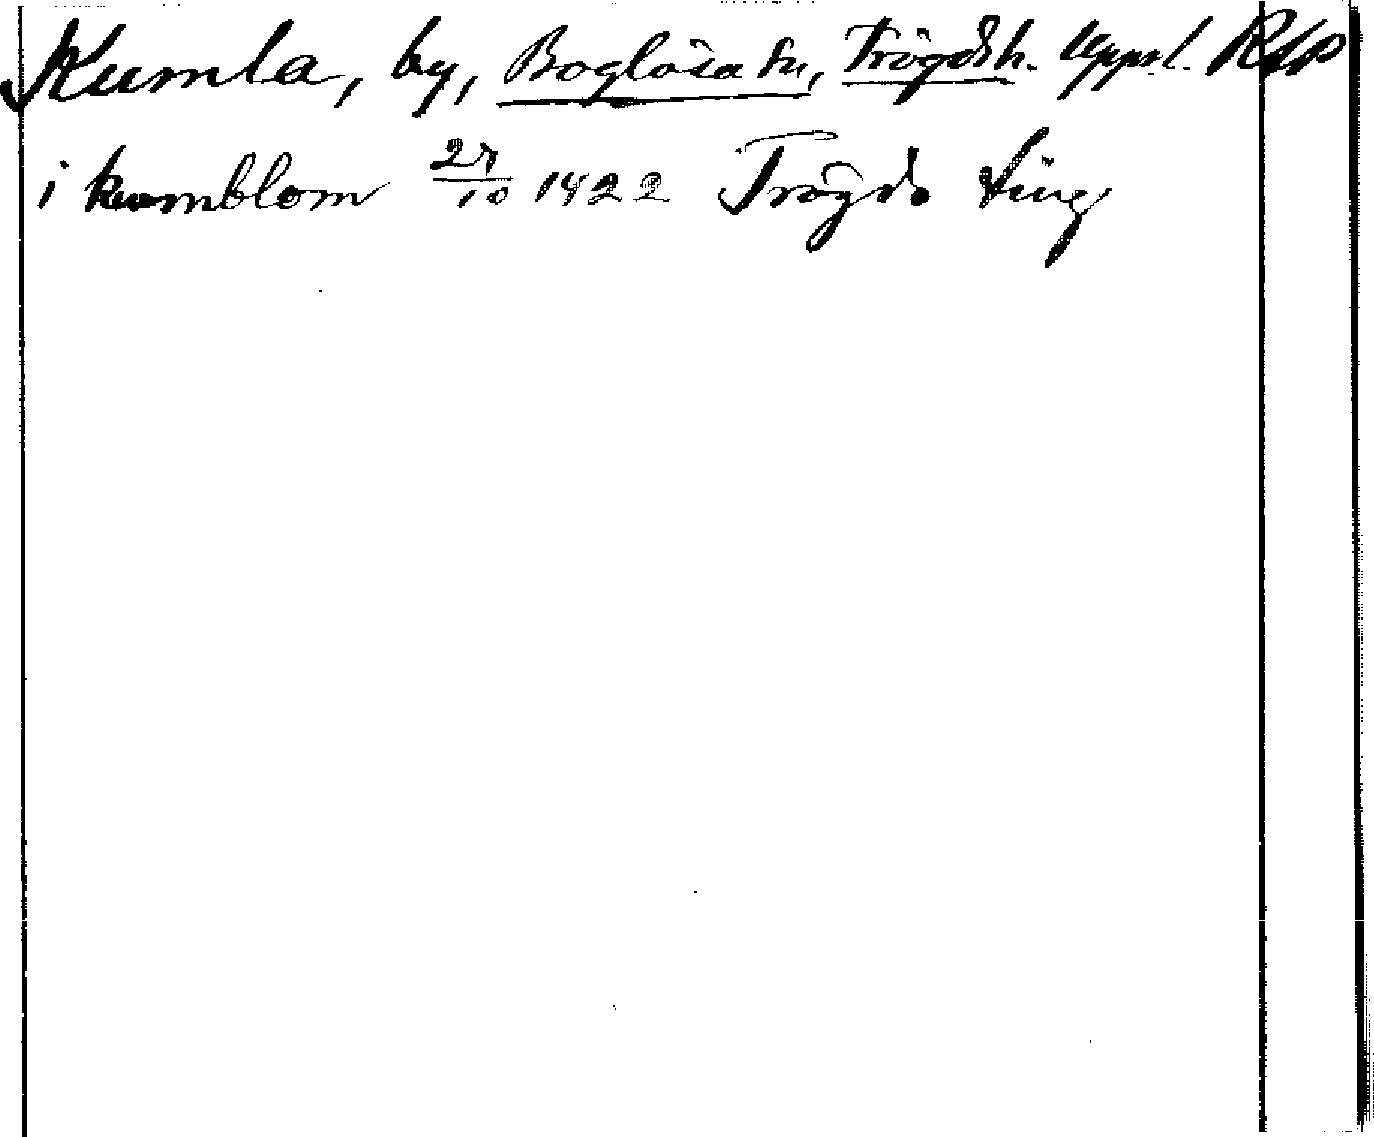 Kumla, by, Boglösa sn, Trögdsh. Uppsl. RAp
i kumblom 27/10 1422 Trögds ting